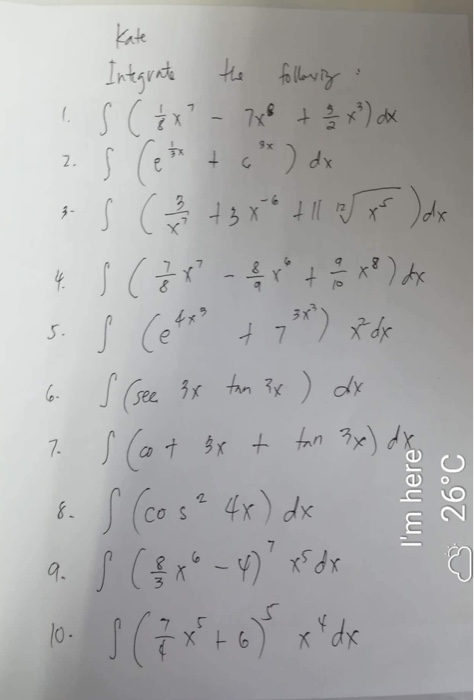 Kate
Integrate the following :
1. ∫ ( 1/8 x^7 - 7x^8 + 9/2 x^3 ) dx
2. ∫ ( e^(1/3x) + 6^(9x) ) dx
3- ∫ ( 3/x^7 + 3x^-6 + 11 ¹²√x^5 ) dx
4. ∫ ( 7/8 x^7 - 8/9 x^6 + 9/10 x^8 ) dx
5. ∫ ( e^(4x^3) + 7^(3x^3) ) x^2 dx
6. ∫ (sec 3x tan 3x ) dx
7. ∫ (cot 3x + tan 3x) dx
8. ∫ (cos^2 4x) dx
9. ∫ ( 8/3 x^6 - 4)^7 x^5 dx
10. ∫ ( 7/4 x^5 + 6)^5 x^4 dx
I'm here
26°C